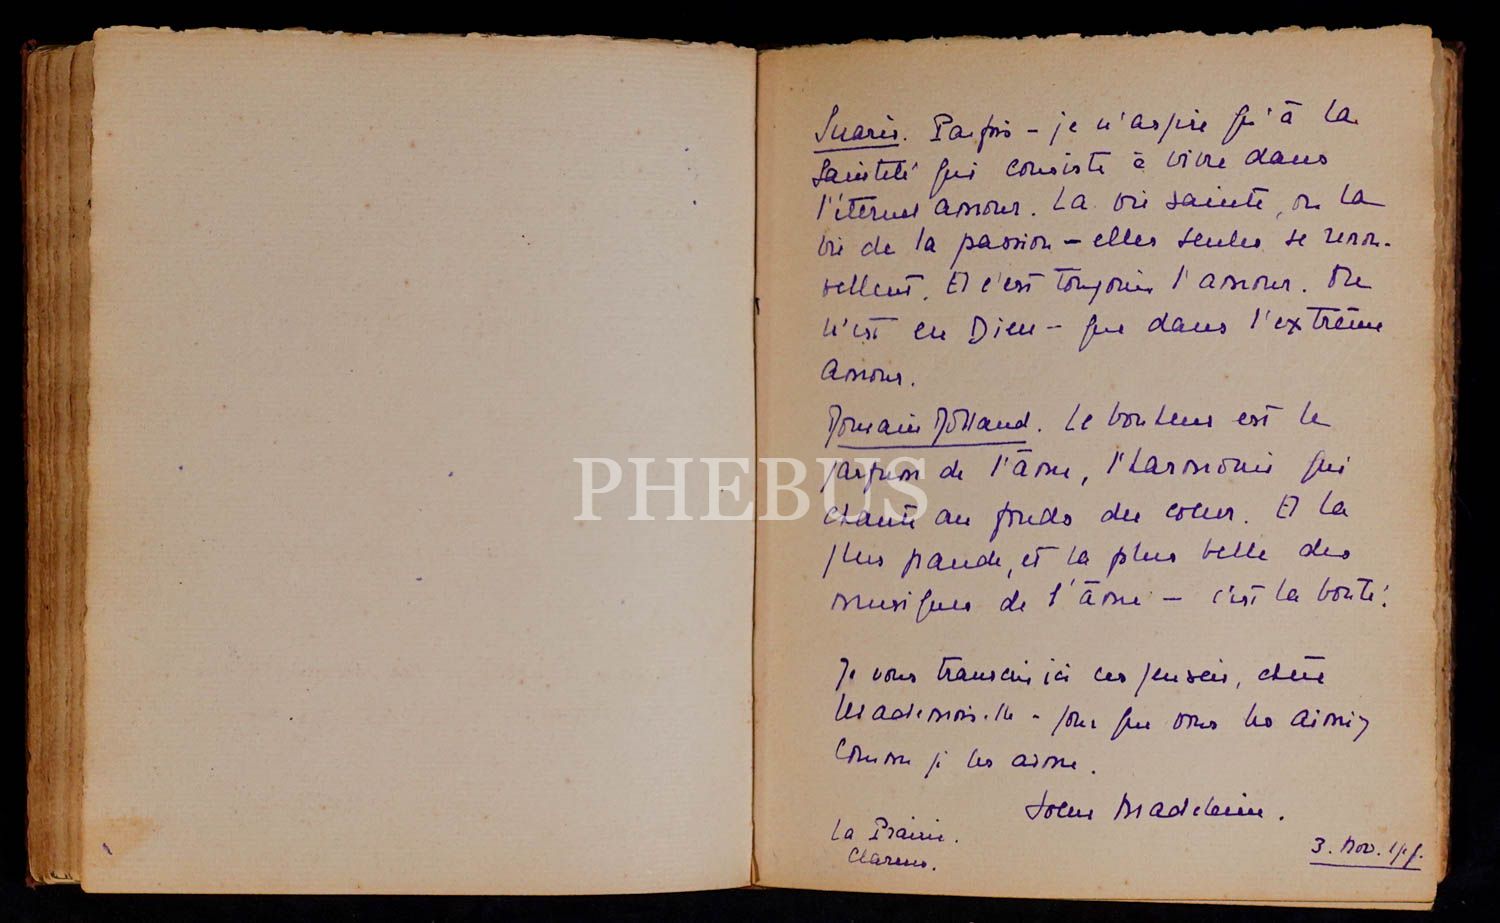 Suarès. Parfois - je n'aspire qu'à la
Sainteté qui consiste à vivre dans
l'éternel amour. La vie sainte, ou la
vie de la passion - elles seules se renou-
vellent. Et c'est toujours l'amour. On
n'est en Dieu - que dans l'extrême
amour.
Romain Rolland. Le bonheur est le
parfum de l'âme, l'harmonie qui
chante au fonds du coeur. Et la
plus grande, et la plus belle des
musiques de l'âme - c'est la bonté.
PHEBUS
Je vous transcris ici ces pensées, chère
Mademoiselle - pour que vous les aimiez
Comme je les aime.
Soeur Madeleine.
La Prairie.
Clarens.
3. Nov.